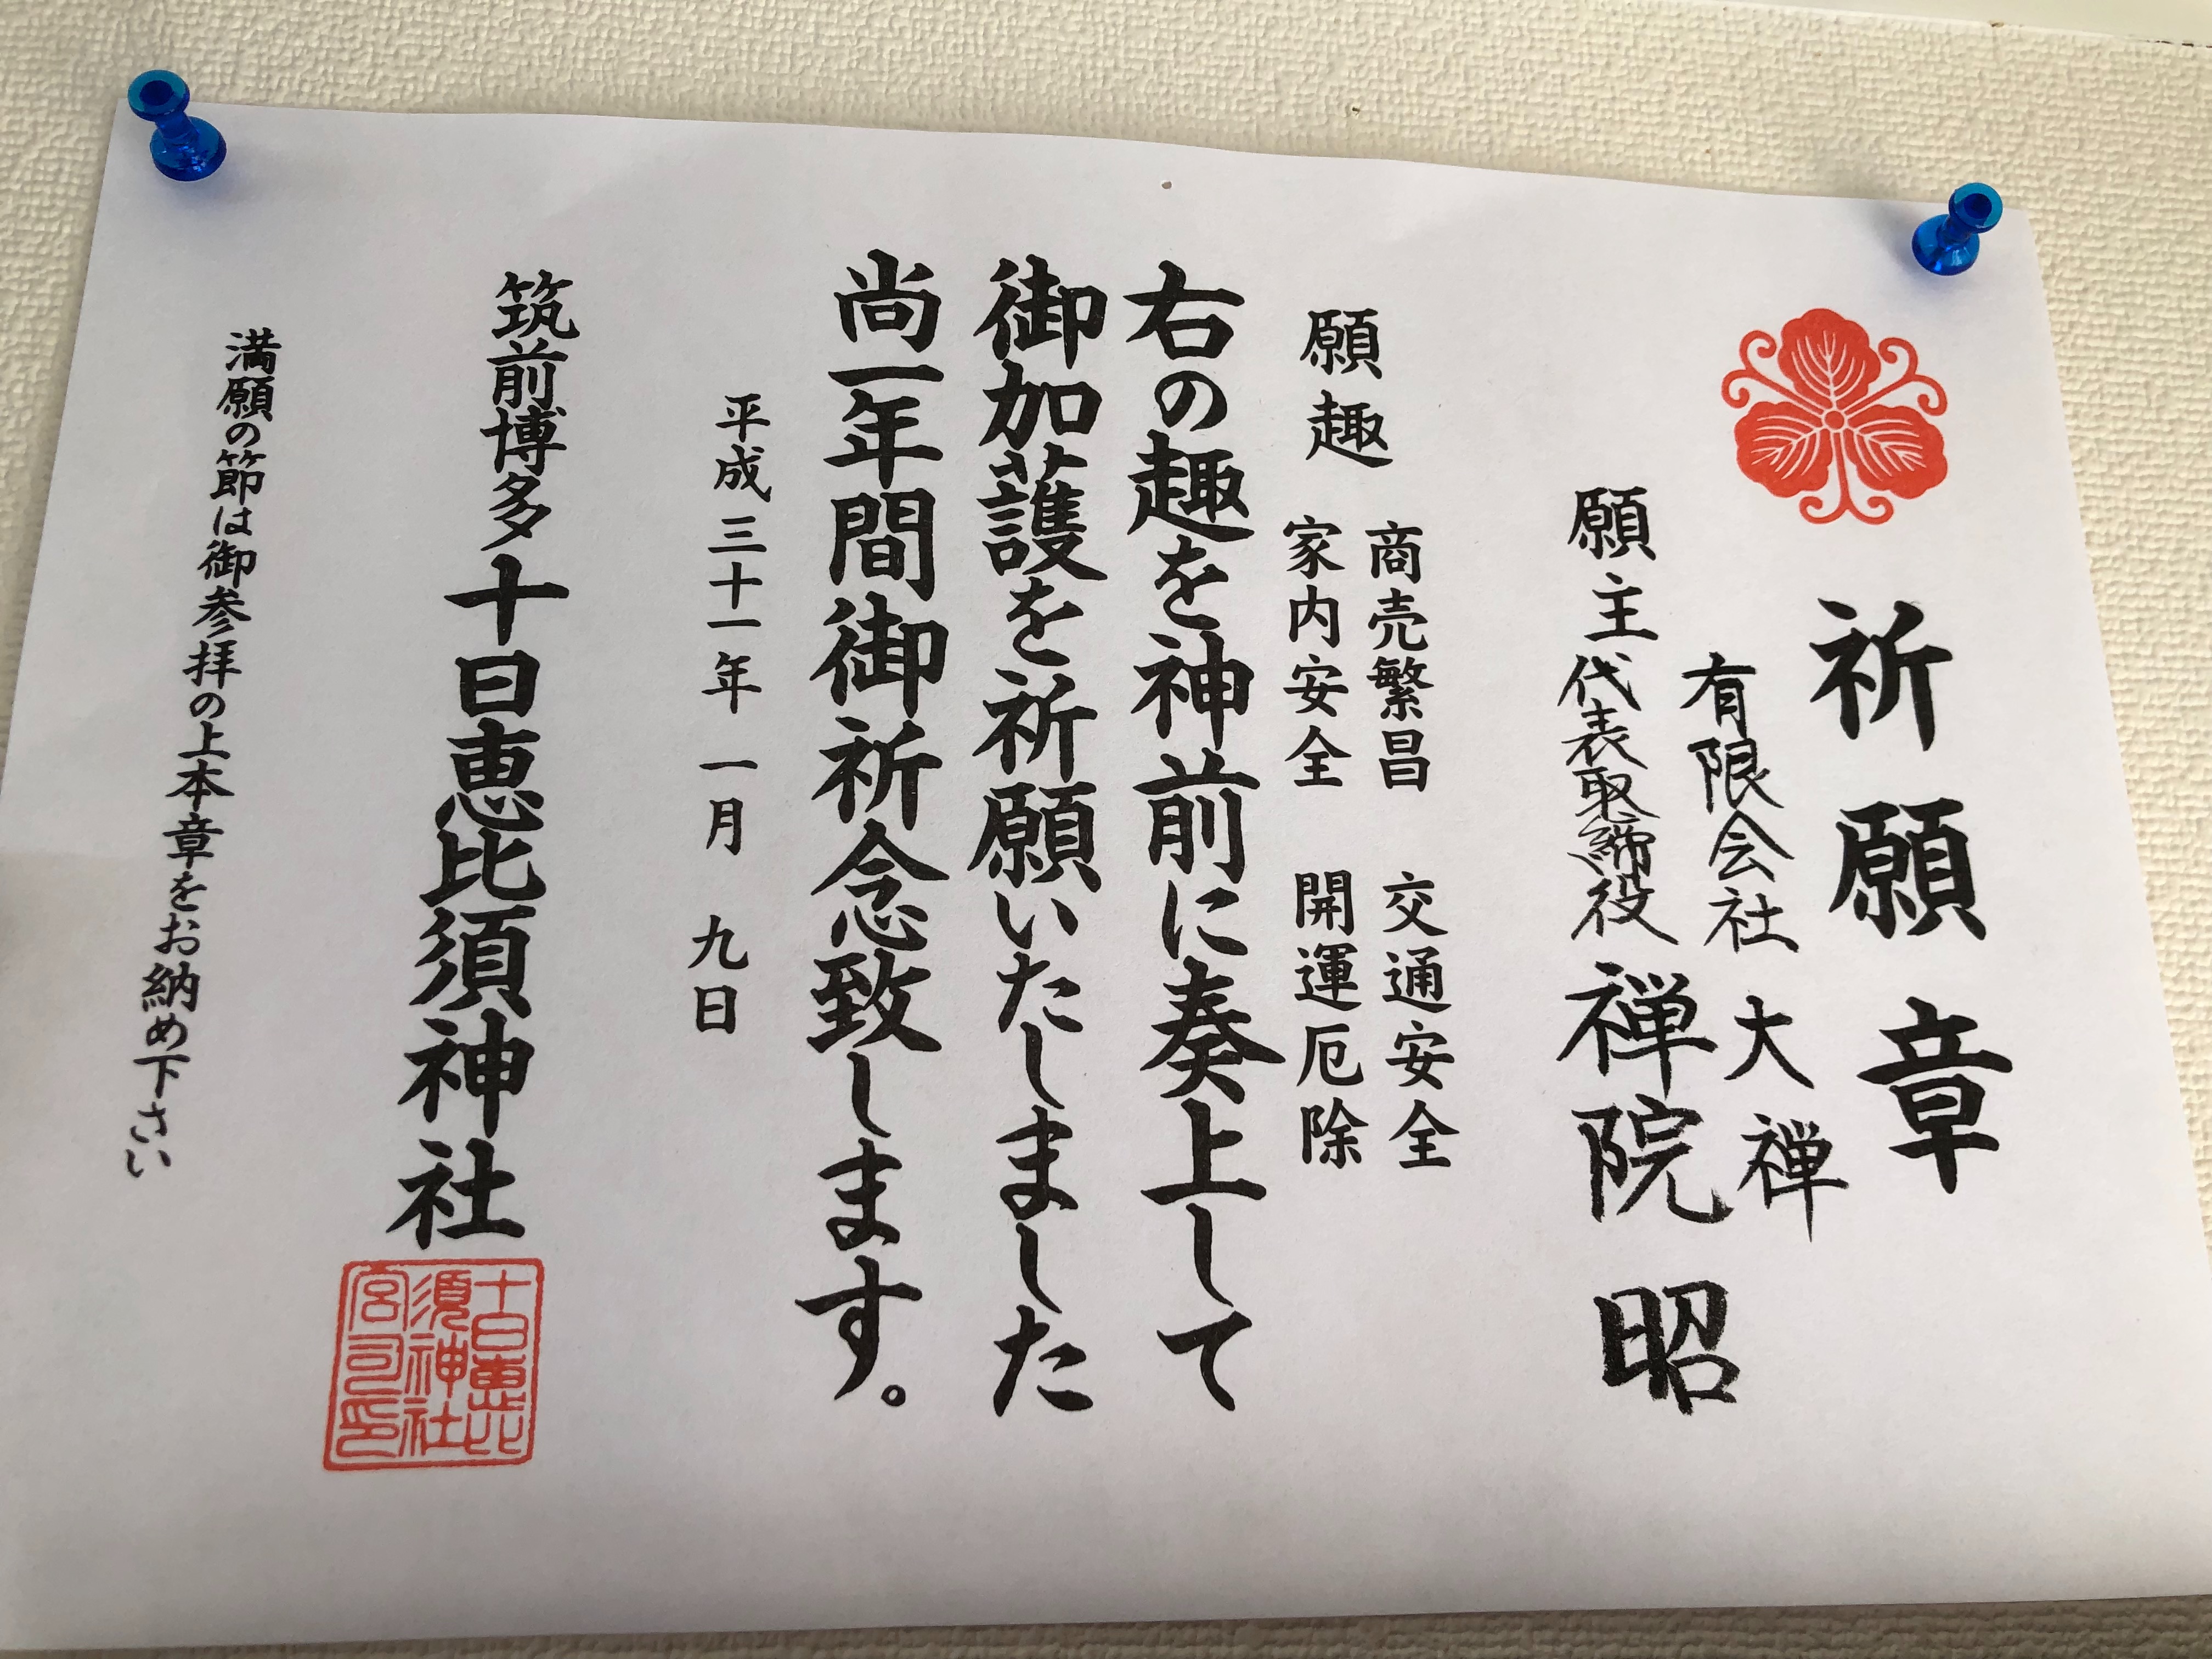 祈願章
有限会社 大禅
願主 代表取締役 禅院 昭
願趣
商売繁昌 交通安全
家内安全 開運厄除
右の趣を神前に奏上して
御加護を祈願いたしました
尚一年間御祈念致します。
平成三十一年 一月 九日
筑前博多十日恵比須神社
十日恵比
須神社
宮司印
満願の節は御参拝の上本章をお納め下さい